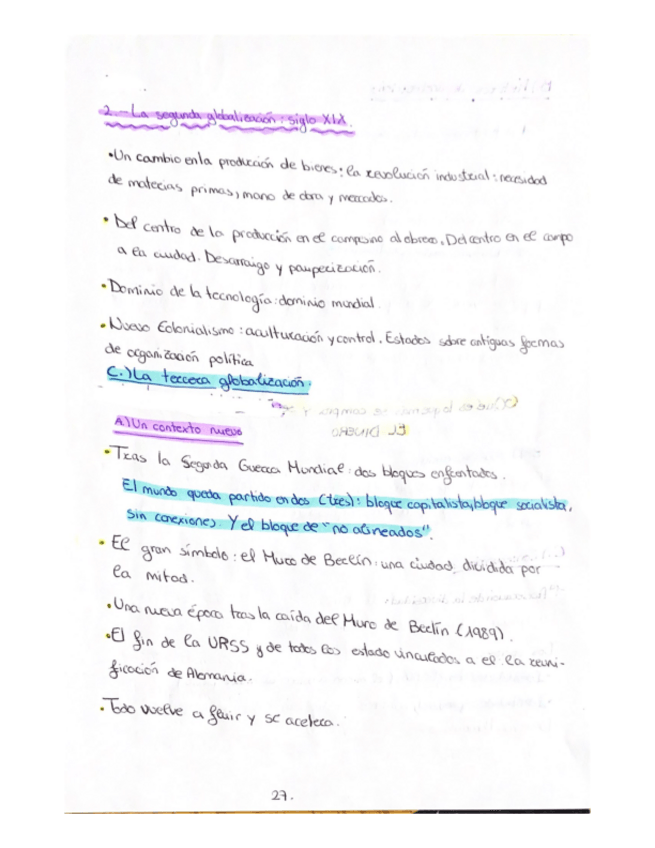 2.-La segunda globalización: siglo XIX.
•Un cambio en la producción de bienes: la revolución industrial: necesidad
de materias primas, mano de obra y mercados.
• Del centro de la producción en el campesino al obrero. Del centro en el campo
a la ciudad. Desarraigo y pauperización.
•Dominio de la tecnología: dominio mundial.
•Nuevo Colonialismo: aculturación y control. Estados sobre antiguas formas
de organización política
C.)La tercera globalización.
A.)Un contexto nuevo
•Tras la Segunda Guerra Mundial: dos bloques enfrentados.
El mundo queda partido en dos (tres): bloque capitalista, bloque socialista,
sin conexiones. Y el bloque de "no alineados".
• El gran símbolo: el Muro de Berlín: una ciudad dividida por
la mitad.
•Una nueva época tras la caída del Muro de Berlín (1989).
•El fin de la URSS y de todos los estado vinculados a el la reuni-
ficación de Alemania.
•Todo vuelve a fluir y se acelera.
27.